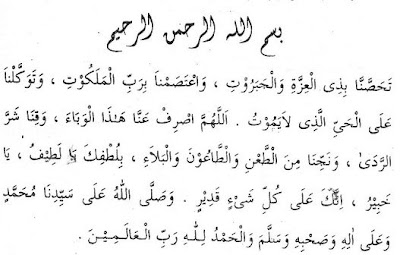 بسم الله الرحمن الرحيم
تَحَصَّنَّا بِذِى الْعِزَّةِ وَالْجَبَرُوْتِ ، وَاعْتَصَمْنَا بِرَبِّ الْمَلَكُوْتِ ، وَتَوَكَّلْنَا
عَلَى الْحَىِّ الَّذِى لاَيَمُوْتُ . اَللّٰهُمَّ اصْرِفْ عَنَّا هٰذَا الْوَبَاءَ ، وَقِنَا شَرَّ
الرَّدَىٰ ، وَنَجِّنَا مِنَ الْطَّعْنِ وَالْطَّاعُوْنَ وَالْبَلاَءِ ، بِلُطْفِكَ يَا لَطِيْفُ ، يَا
خَبِيْرُ ، اِنَّكَ عَلَى كُلِّ شَىْءٍ قَدِيْرٍ . وَصَلَّى اللهُ عَلَى سَيِّدِنَا مُحَمَّدٍ
وَعَلَى اٰلِهِ وَصَحْبِهِ وَسَلَّمَ وَالْحَمْدُ لِلّٰهِ رَبِّ الْعَالَمِيْنَ .